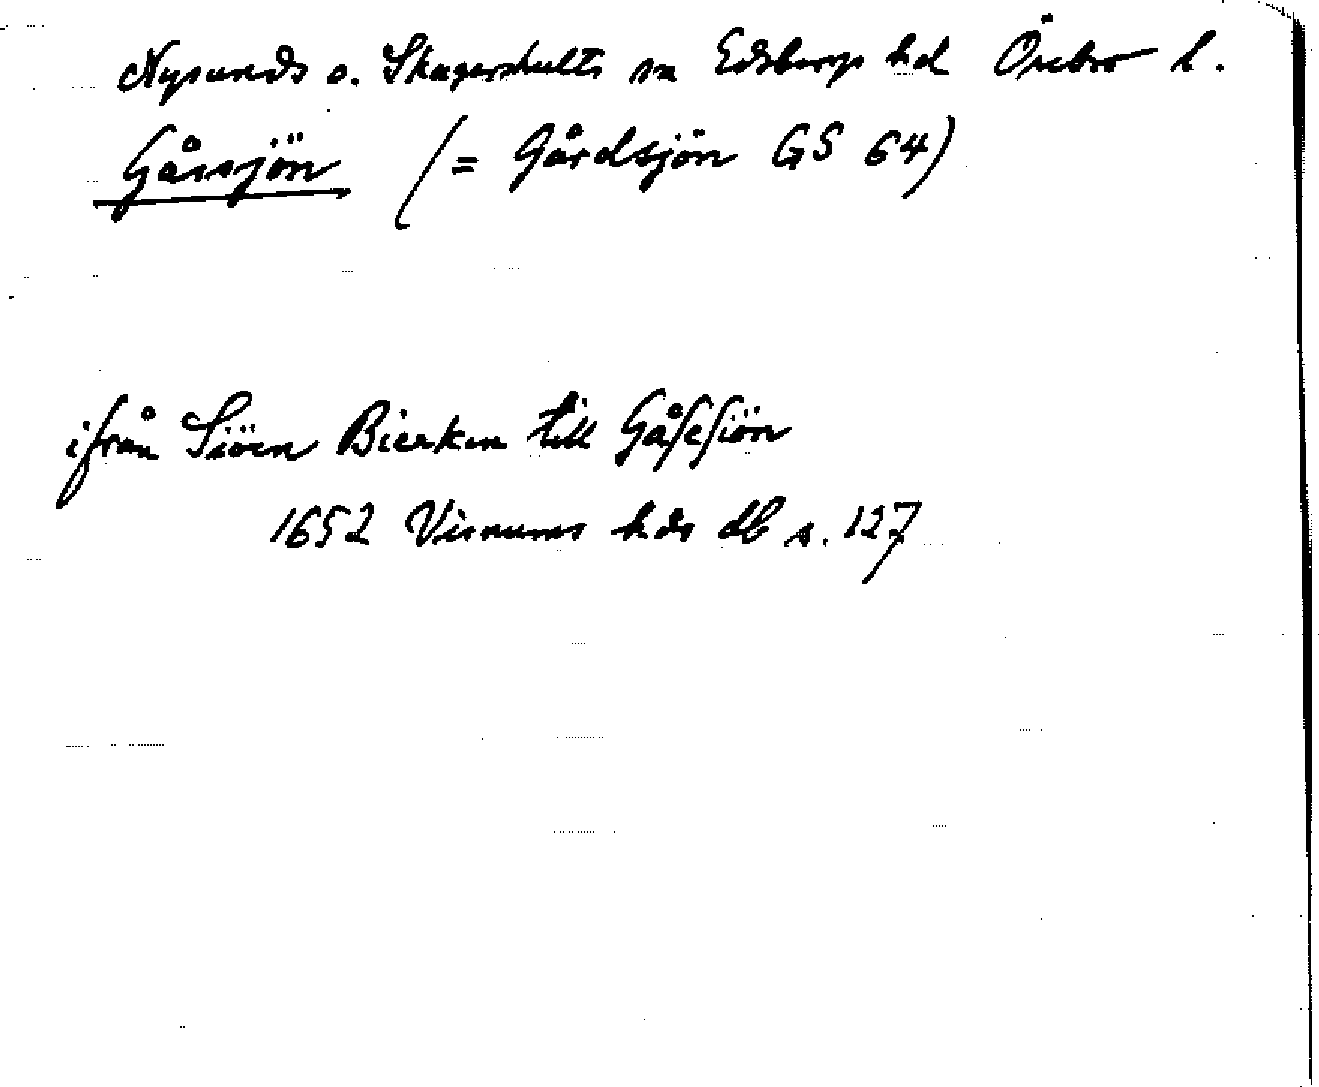 Nysunds o. Skagershults sn Edsbergs hd Örebro l.
Gåssjön (= Gårdsjön GS 64)
ifrån Siöen Bierken till Gåſeſiön
1652 Visnums hds db s. 127